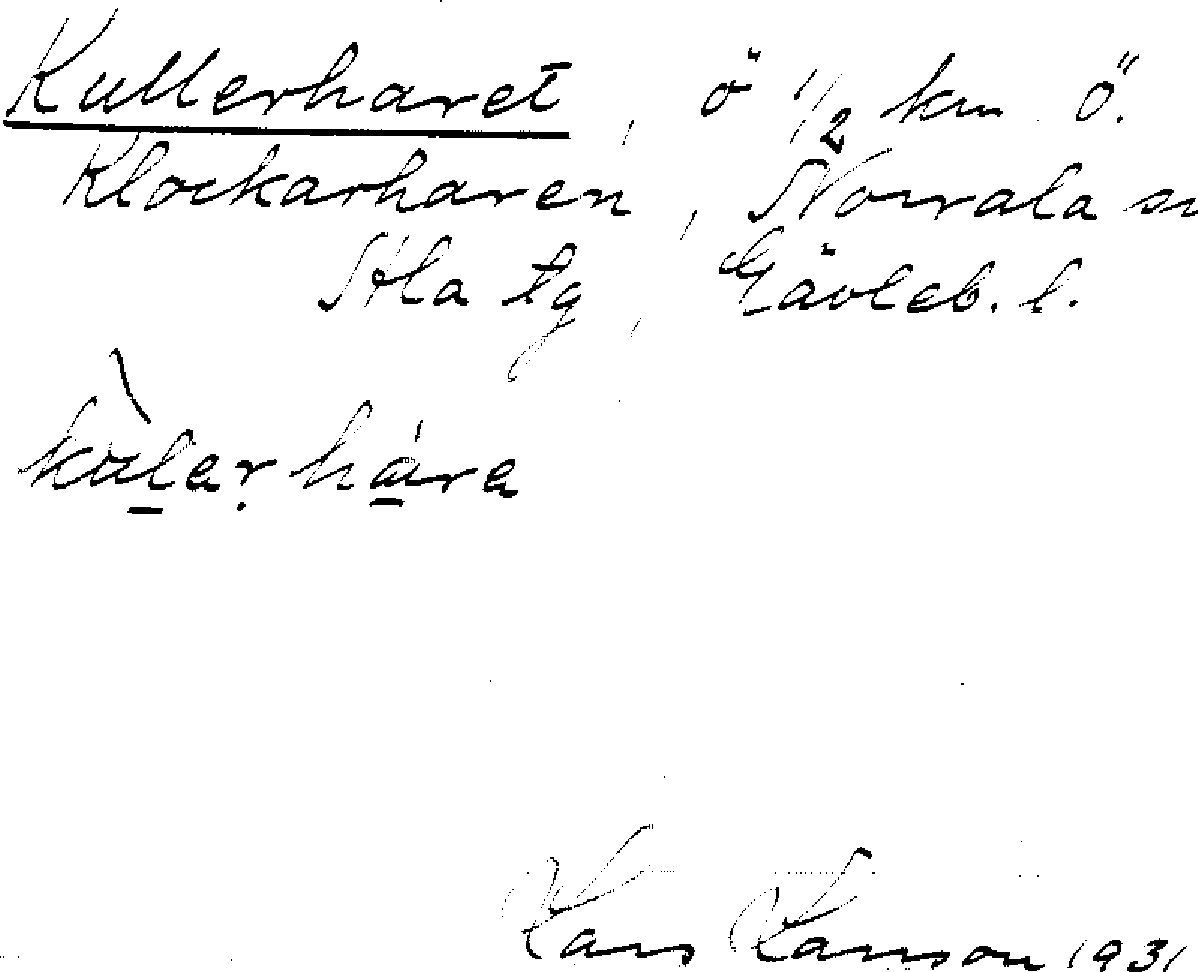 Kullerharet, ö 1/2 km Ö.
Klockarharen, Norrala sn
Ala tg, Gävleb. l.
kùlar hára
Lars Larsson 1931